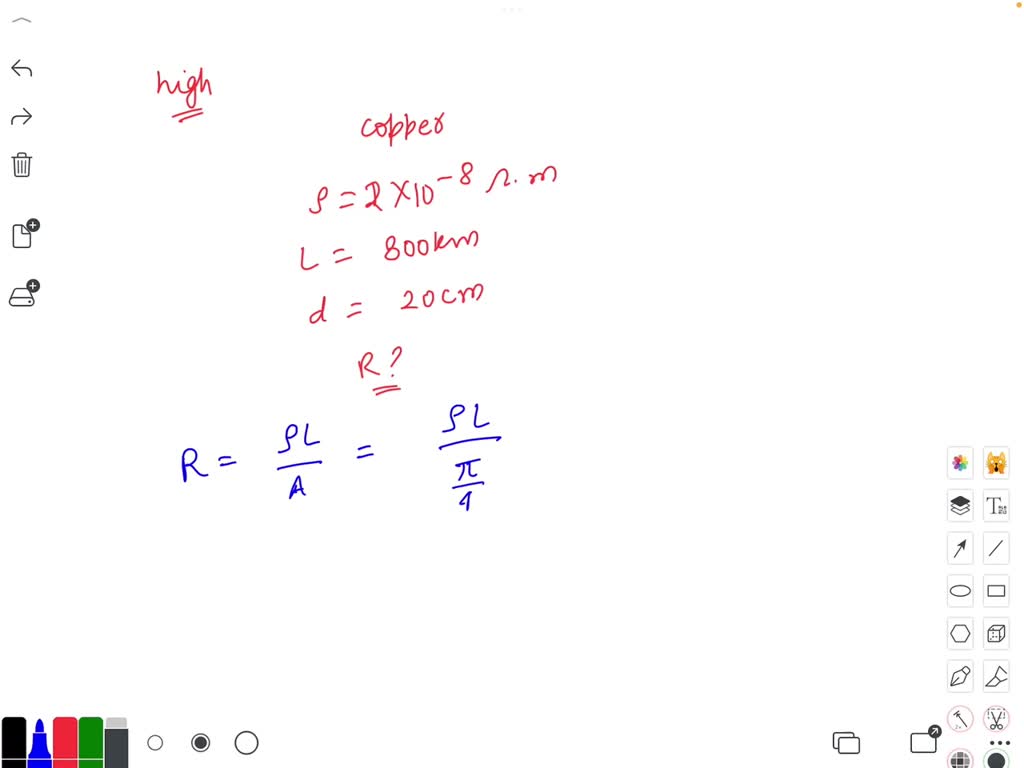 high
copper
ρ = 2 × 10⁻⁸ Ω.m
L = 800km
d = 20cm
R?
R = ρL/A = ρL/(π/4)